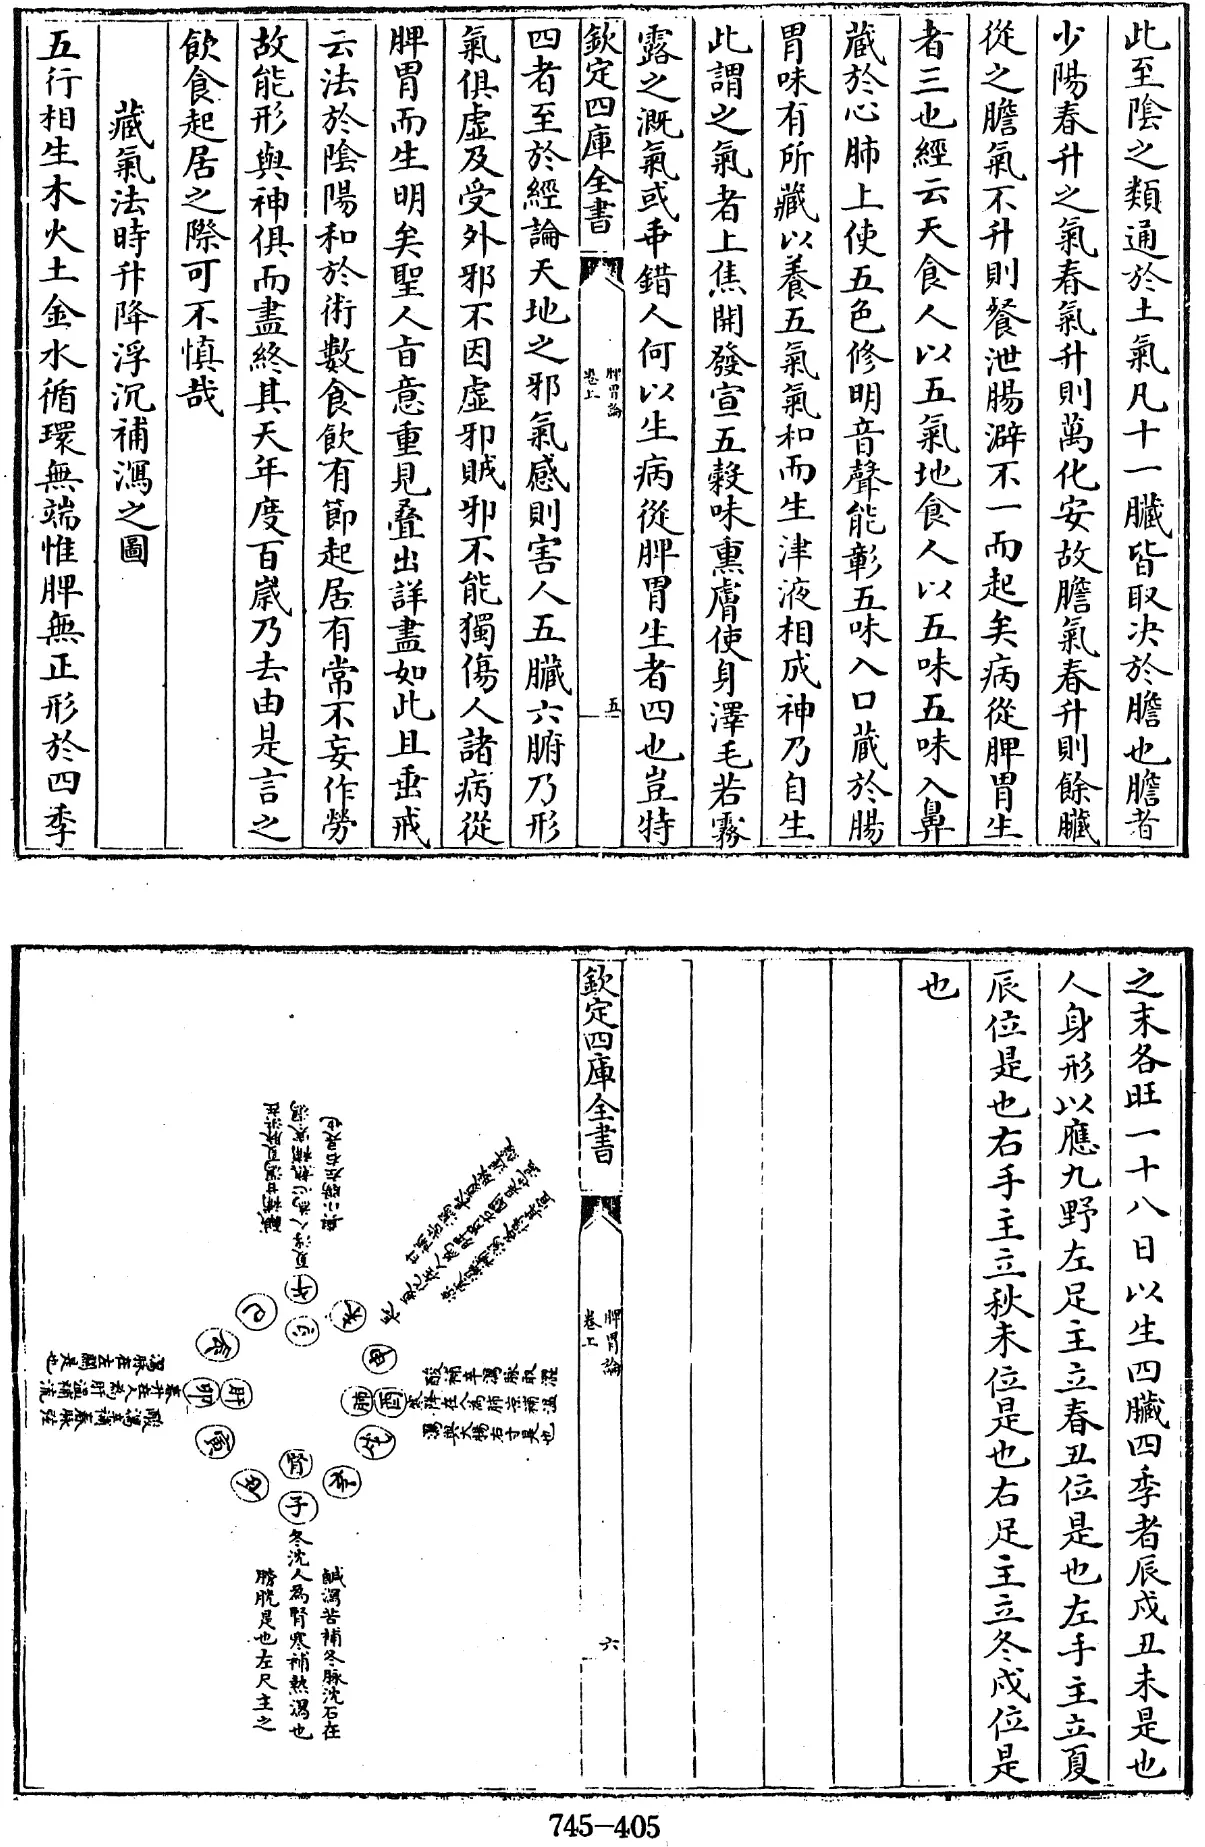 此至陰之類通於土氣凡十一臟皆取決於膽也膽者
少陽春升之氣春氣升則萬化安故膽氣春升則餘臟
從之膽氣不升則飱泄腸澼不一而起矣病從脾胃生
者三也經云天食人以五氣地食人以五味五味入鼻
蔵於心肺上使五色修明音聲能彰五味入口蔵於腸
胃味有所藏以養五氣氣和而生津液相成神乃自生
此謂之氣者上焦開發宣五穀味熏膚使身澤毛若霧
露之溉氣或乖錯人何以生病從脾胃生者四也豈特
欽定四庫全書
脾胃論
卷上
五
四者至於經論天地之邪氣感則害人五臟六腑乃形
氣俱虛及受外邪不因虛邪賊邪不能獨傷人諸病從
脾胃而生明矣聖人旨意重見疊出詳盡如此且垂戒
云法於陰陽和於術數食飲有節起居有常不妄作勞
故能形與神俱而盡終其天年度百歲乃去由是言之
飲食起居之際可不慎哉
藏氣法時升降浮沉補瀉之圖
五行相生木火土金水循環無端惟脾無正形於四季
之末各旺一十八日以生四臟四季者辰戌丑未是也
人身形以應九野左足主立春丑位是也左手主立夏
辰位是也右手主立秋未位是也右足主立冬戌位是
也
欽定四庫全書
脾胃論
卷上
六
鹹補甘瀉夏脉洪在
夏浮人為心熱補寒瀉
與小腸左右是也
午
心
未
申
酉
肺
戌
亥
子
腎
丑
寅
卯
肝
辰
巳
酸補辛瀉
秋降在人為肺凉補温
瀉與大腸右寸是也
酸瀉辛補春脉弦
春升在人為肝温補凉
瀉脉在左關是也
鹹瀉苦補冬脉沈石在
冬沈人為腎寒補熱瀉也
膀胱是也左尺主之
745-405